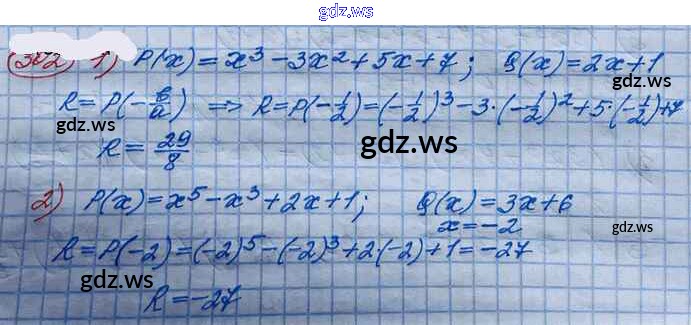 gdz.ws
1) P(x) = x³ - 3x² + 5x + 7; Q(x) = 2x + 1
gdz.ws
R = P(-в/a) => R = P(-1/2) = (-1/2)³ - 3·(-1/2)² + 5·(-1/2) + 7
gdz.ws
R = 29/8
gdz.ws
2) P(x) = x⁵ - x³ + 2x + 1; Q(x) = 3x + 6
x = -2
gdz.ws
R = P(-2) = (-2)⁵ - (-2)³ + 2(-2) + 1 = -27
gdz.ws
R = -27
gdz.ws